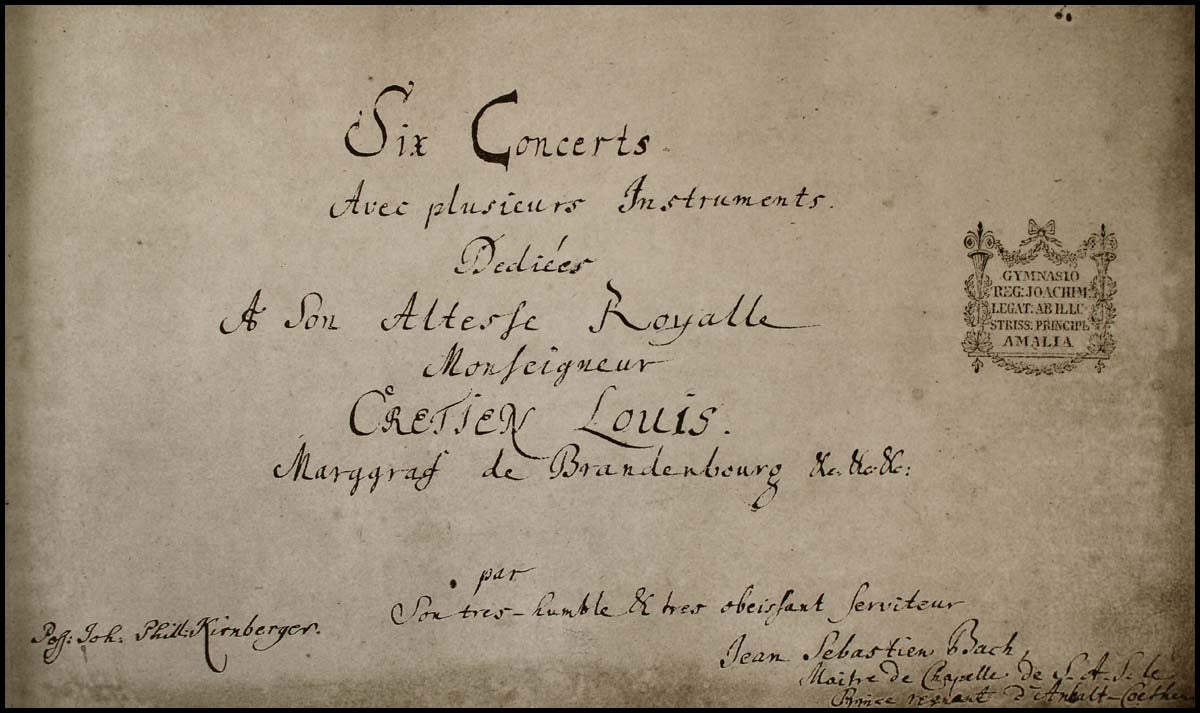 Six Concerts
Avec plusieurs Instruments.
Dediées
A Son Altesse Royalle
Monseigneur
CRETIEN LOUIS.
Marggraf de Brandenbourg &c. &c. &c:
par
Son tres-humble & tres obeissant serviteur
Jean Sebastien Bach,
Maitre de Chapelle de S. A. S. le
Prince regnant d'Anhalt-Coethen
Poss: Joh: Phill: Kirnberger.
GYMNASIO
REG: JOACHIM:
LEGAT: AB ILLU
STRISS: PRINCIPE
AMALIA